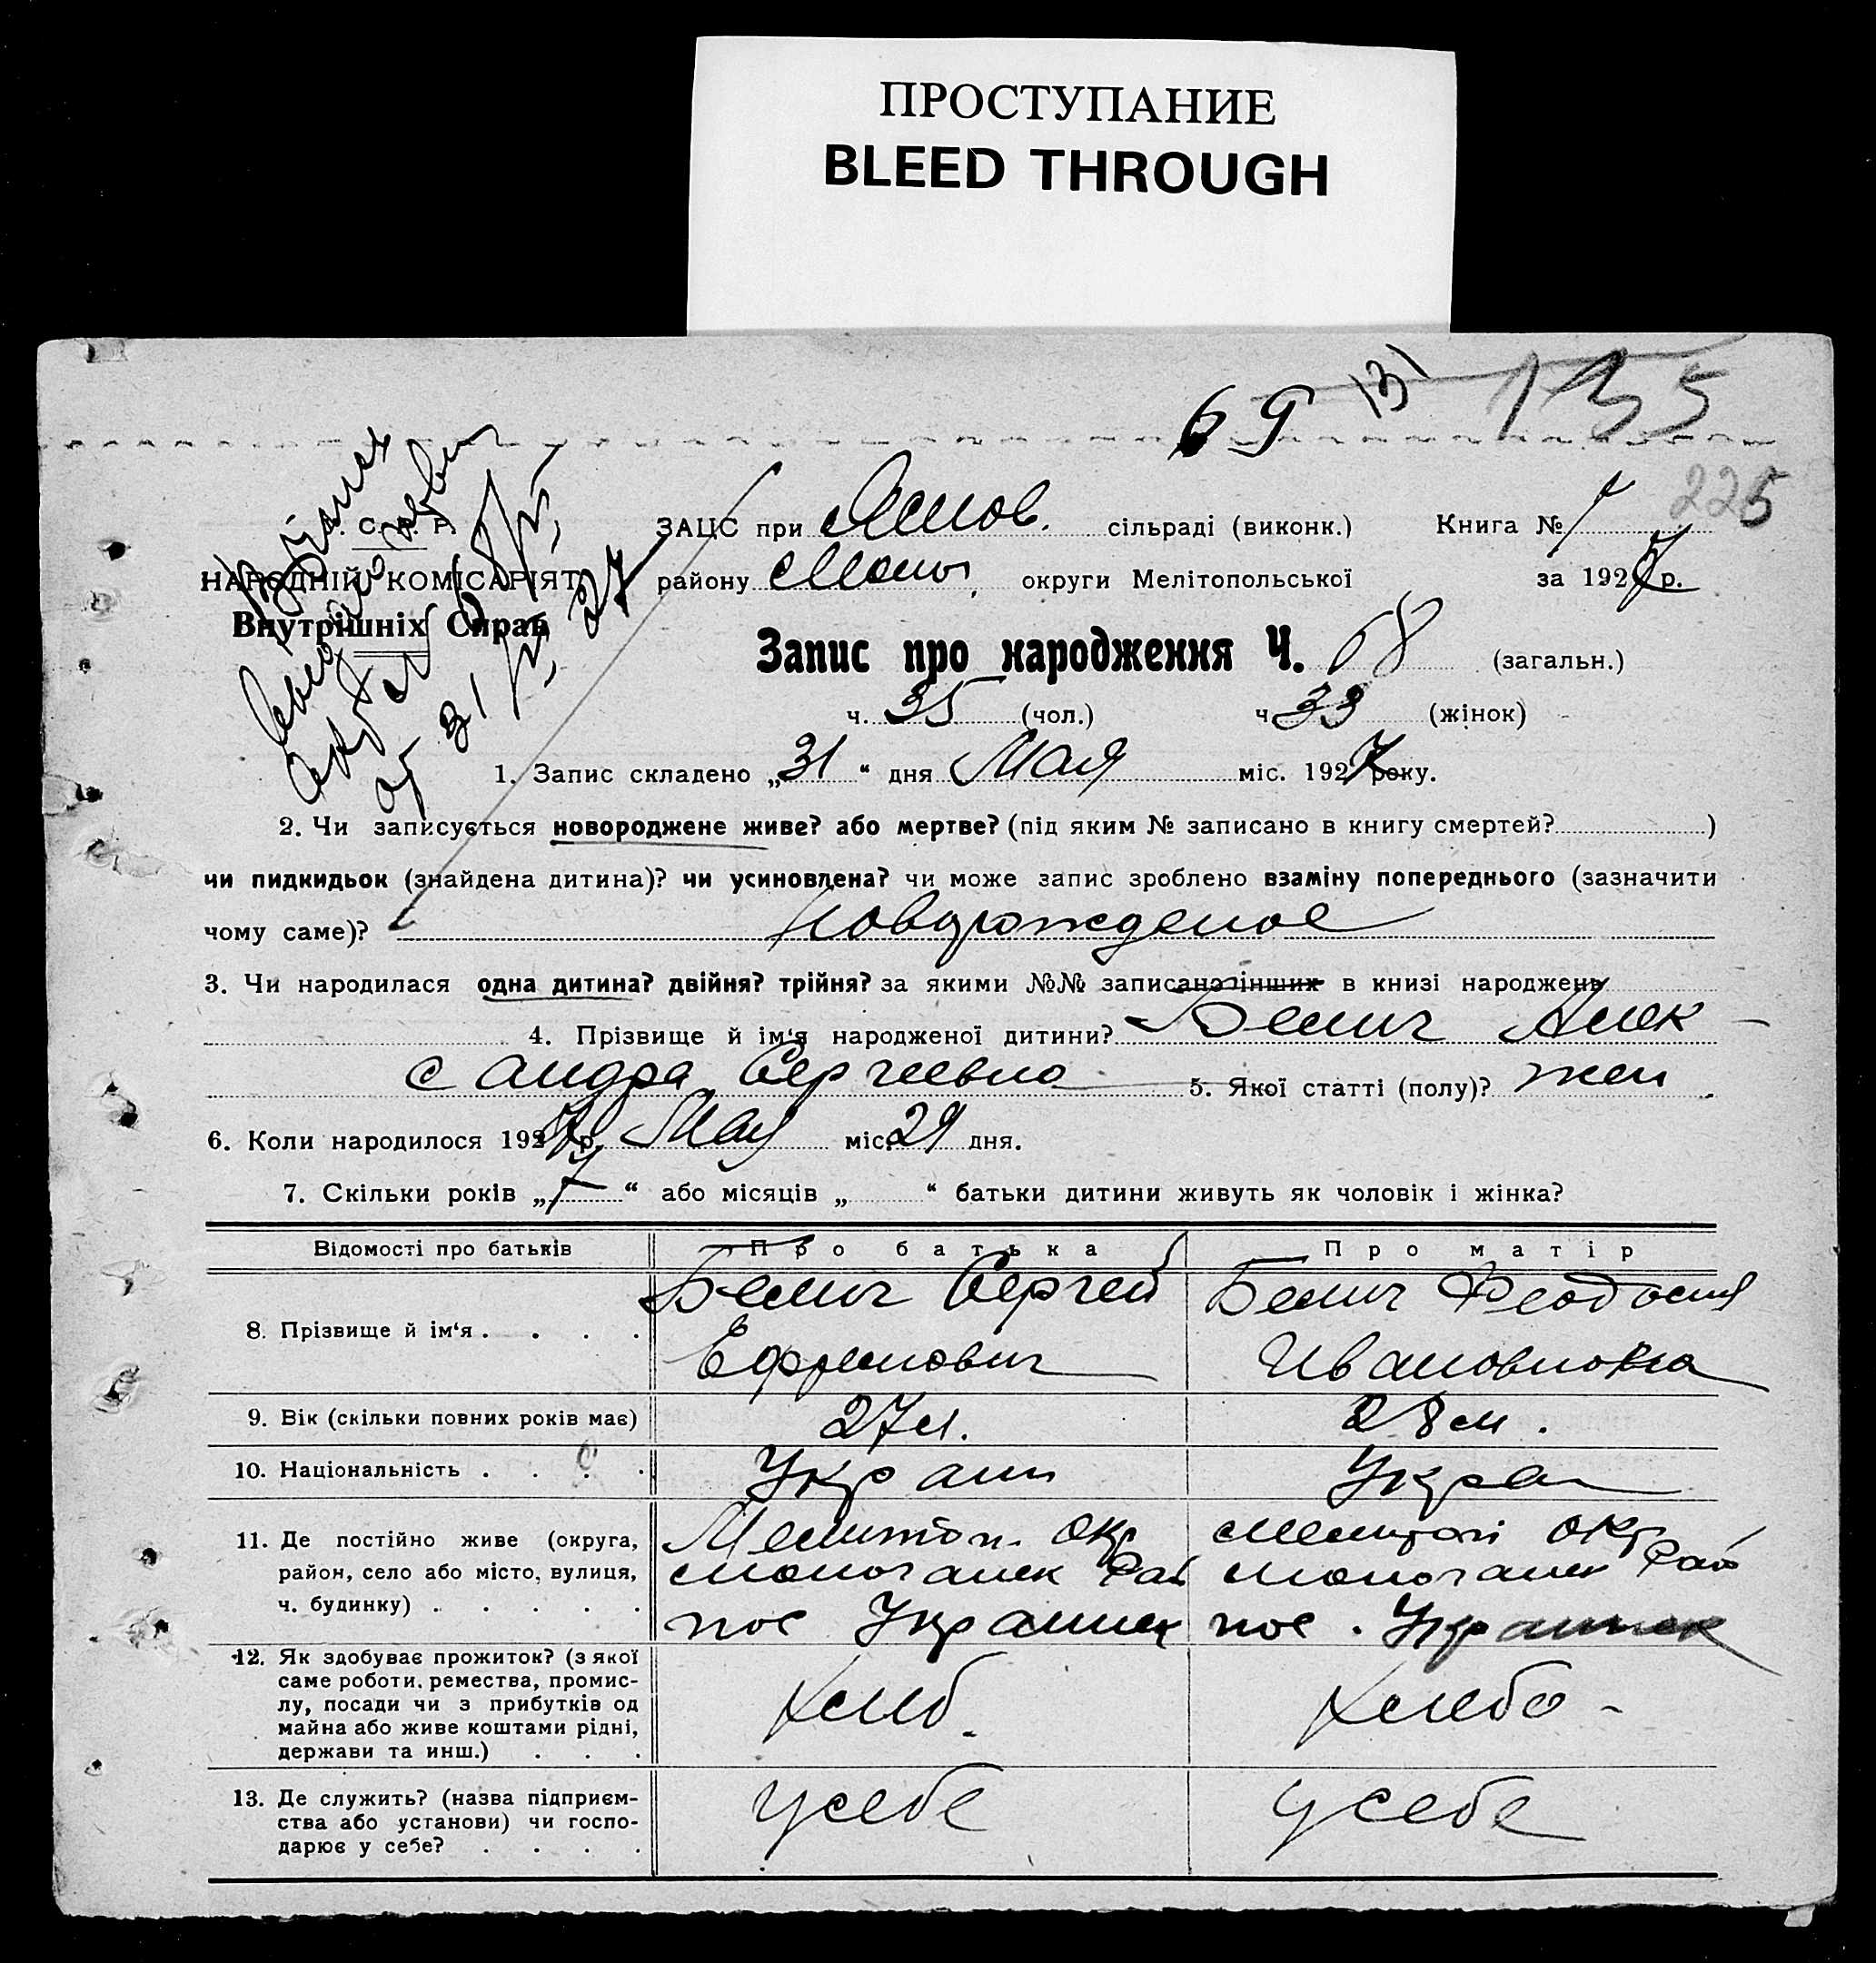 ПРОСТУПАНИЕ
BLEED THROUGH
69 131 135
225
С. Р. Р.
НАРОДНІЙ КОМІСАРІЯТ
Внутрішніх Справ
от 31/V 27
ЗАЦС при сільраді (виконк.) Книга № 1
району округи Мелітопольської за 1927 р.
Запис про народження Ч. 68 (загальн.)
ч. 35 (чол.) ч. 33 (жінок)
1. Запис складено „31“ дня Мая міс. 1927 року.
2. Чи записується новороджене живе? або мертве? (під яким № записано в книгу смертей? )
чи пидкидьок (знайдена дитина)? чи усиновлена? чи може запис зроблено взаміну попереднього (зазначити
чому саме)? Новорожденое
3. Чи народилася одна дитина? двійня? трійня? за якими №№ записано інших в книзі народжень
4. Прізвище й ім‘я народженої дитини? Белич Алек-
сандра Сергеевна 5. Якої статті (полу)? жен
6. Коли народилося 1927 р. Мая міс. 29 дня.
7. Скільки років „7“ або місяців „ “ батьки дитини живуть як чоловік і жінка?
Відомості про батьків Про батька Про матір
8. Прізвище й ім‘я . . . . Белич Сергей Белич Феодосия
Ефремович Ивановновна
9. Вік (скільки повних років має) 27 л. 28 л.
10. Національність . . . . Украин Укра
11. Де постійно живе (округа, Мелитоп. окр Мелитоп окр
район, село або місто, вулиця, район
ч. будинку) . . . . . пос Украинск пос. Украинск
12. Як здобуває прожиток? (з якої
саме роботи, ремества, промис-
лу, посади чи з прибутків од Хлеб. Хлебо-
майна або живе коштами рідні,
держави та инш.) . . .
13. Де служить? (назва підприєм- У себе У себе
ства або установи) чи госпо-
дарює у себе? . . . .